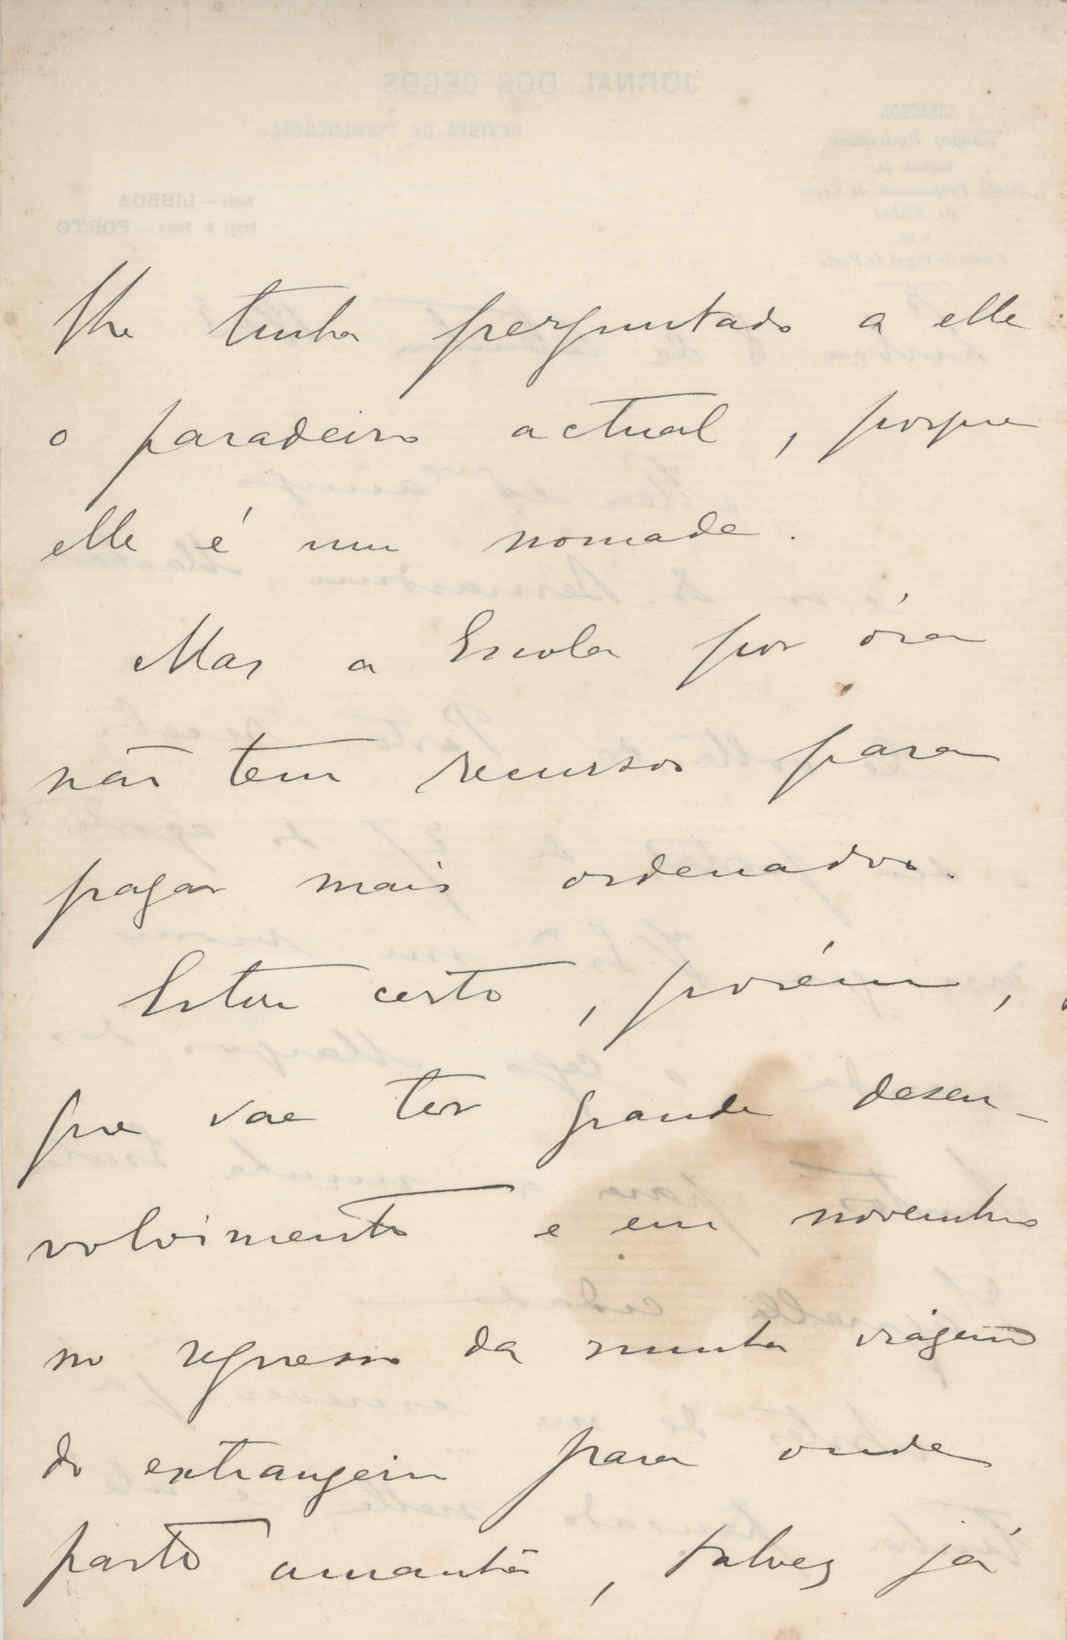 lhe tinha perguntado a elle
o paradeiro actual, porque
elle é um nomade.
Mas a Escola por óra
não tem recursos para
pagar mais ordenados.
Estou certo, porém,
que vae ter grande desen-
volvimento e em novembro
no regresso da minha viagem
do extrangeiro para onde
parto amanhã, talvez já